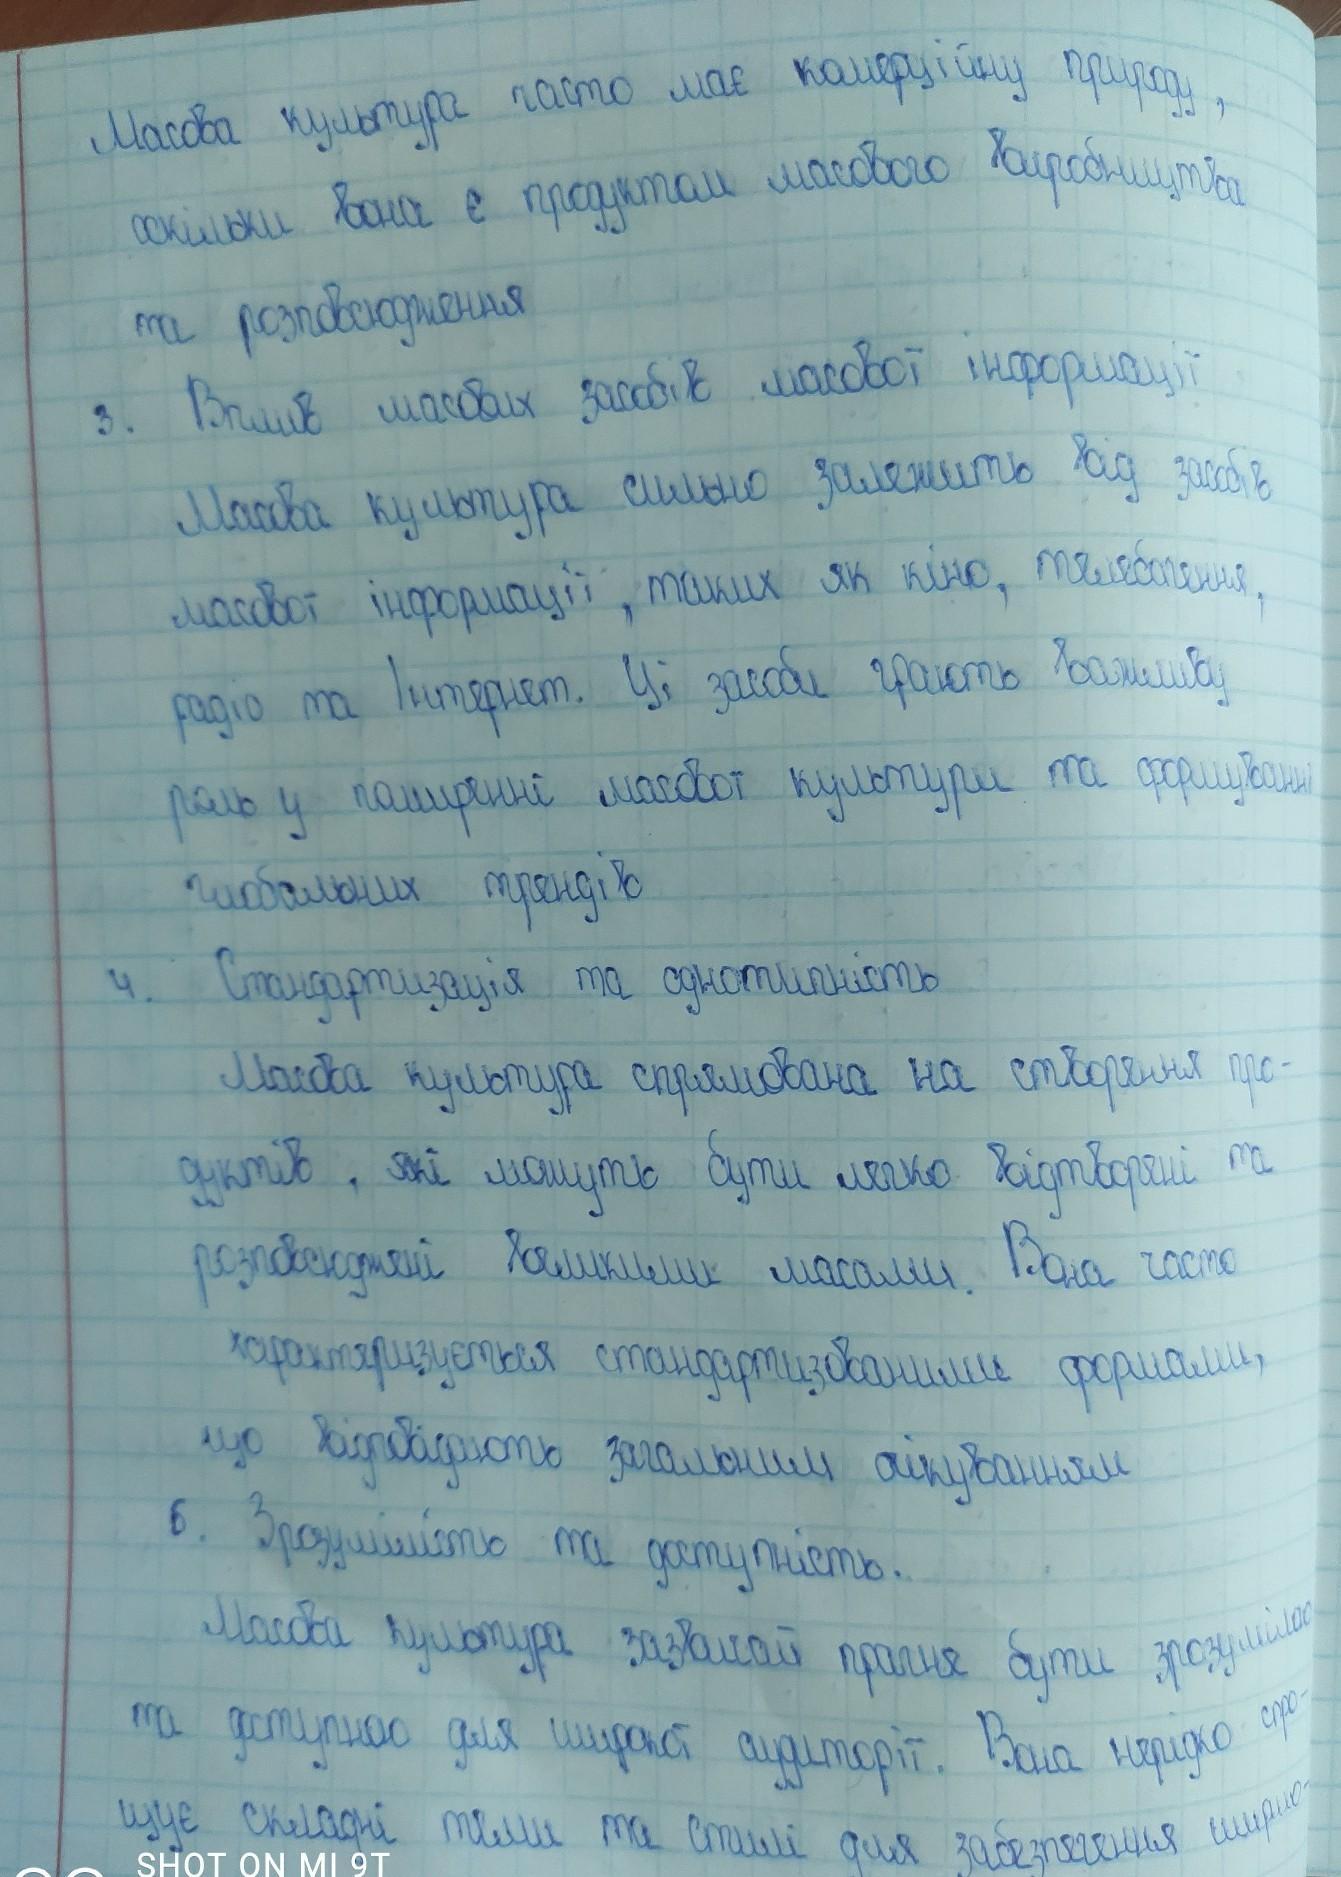 Масова культура часто має комерційну природу,
оскільки вона є продуктом масового виробництва
та розповсюдження
3. Вплив масових засобів масової інформації
Масова культура сильно залежить від засобів
масової інформації, таких як кіно, телебачення,
радіо та Інтернет. Ці засоби грають важливу
роль у поширенні масової культури та формуванні
глобальних трендів
4. Стандартизація та однотипність
Масова культура спрямована на створення про-
дуктів, які можуть бути легко відтворені та
розповсюджені великими масами. Вона часто
характеризується стандартизованими формами,
що відповідають загальним очікуванням
6. Зрозумілість та доступність.
Масова культура зазвичай прагне бути зрозумілою
та доступною для широкої аудиторії. Вона нерідко спро-
щує складні теми та стилі для забезпечення широ-
SHOT ON MI 9T